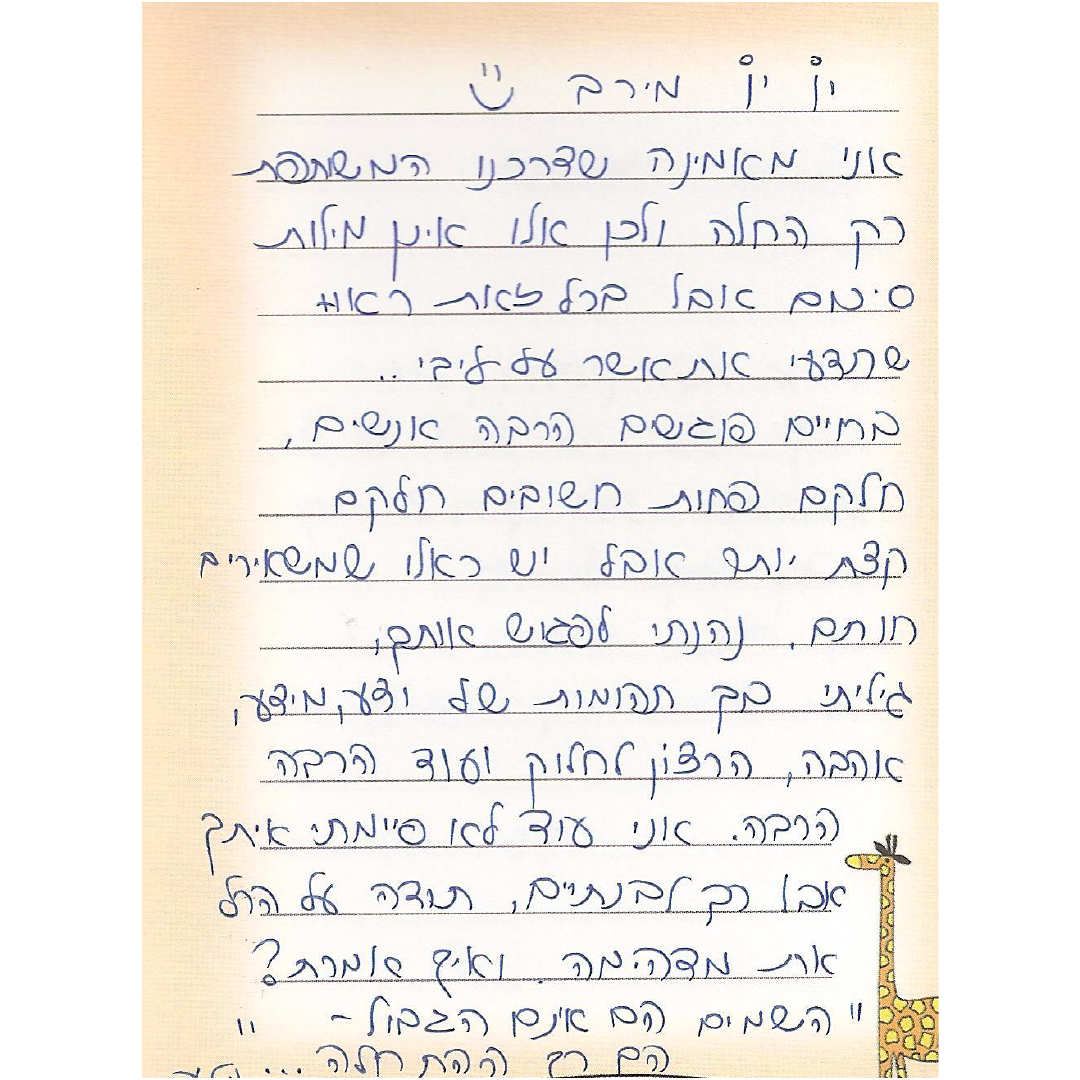 מירב
אני מאמינה שדרכנו המשותפת
רק החלה ולכן אלו אינן מילות
סיכום אבל בכל זאת ראוי
שתדעי את אשר על ליבי ..
בחיים פוגשים הרבה אנשים,
חלקם פחות חשובים חלקם
קצת יותר אבל יש כאלו שמשאירים
חותם. נהנתי לפגוש אותך,
גיליתי בך תהומות של ידע, מידע,
אהבה, הרצון לחלוק ועוד הרבה
הרבה. אני עוד לא סיימתי איתך
אבל רק לבנתיים, תודה על הכל
את מדהימה. ואיך אומרת?
"השמים הם אינם הגבול -
הם רק ההתחלה ... "